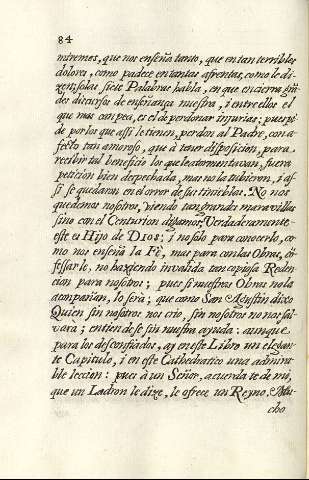 84
miremos, que nos enseña tanto, que en tan terribles
dolores, como padece en tantas afrentas, como le di-
zen, solas siete Palabras habla, en que encierra grã
des discursos de enseñança nuestra, i entre ellos el
que mas campea, es el de perdonar injurias; pues pi
de por los que assi le tienen, perdon al Padre, con a-
fecto tan amoroso, que à tener disposicion, para
recibir tal beneficio los que le atormentavan, fuera
peticion bien despachada, mas no la tubieron, i as-
si se quedaron en el error de sus tinieblas. No nos
quedemos nosotros, viendo tan grandes maravillas
sino con el Centurion digamos: Verdaderamente
este es Hijo de DIOS; i no solo para conocerlo, co-
mo nos enseña la Fè, mas para con las Obras, cõ-
fessarlo, no haziendo invalida tan copiosa Reden
cion para nosotros; pues si nuestras Obras no la
acompañan, lo serà; que como San Agustin dixo
Quien sin nosotros nos crio, sin nosotros no nos sal-
varà; entiendese sin nuestra ayuda: aunque
para los desconfiados, ay en este Libro un elegan-
te Capitulo, i en este Cathedratico una admira-
ble leccion: pues à un Señor, acuerdate de mi,
que un Ladron le dize, le ofrece un Reyno. Mu-
cho